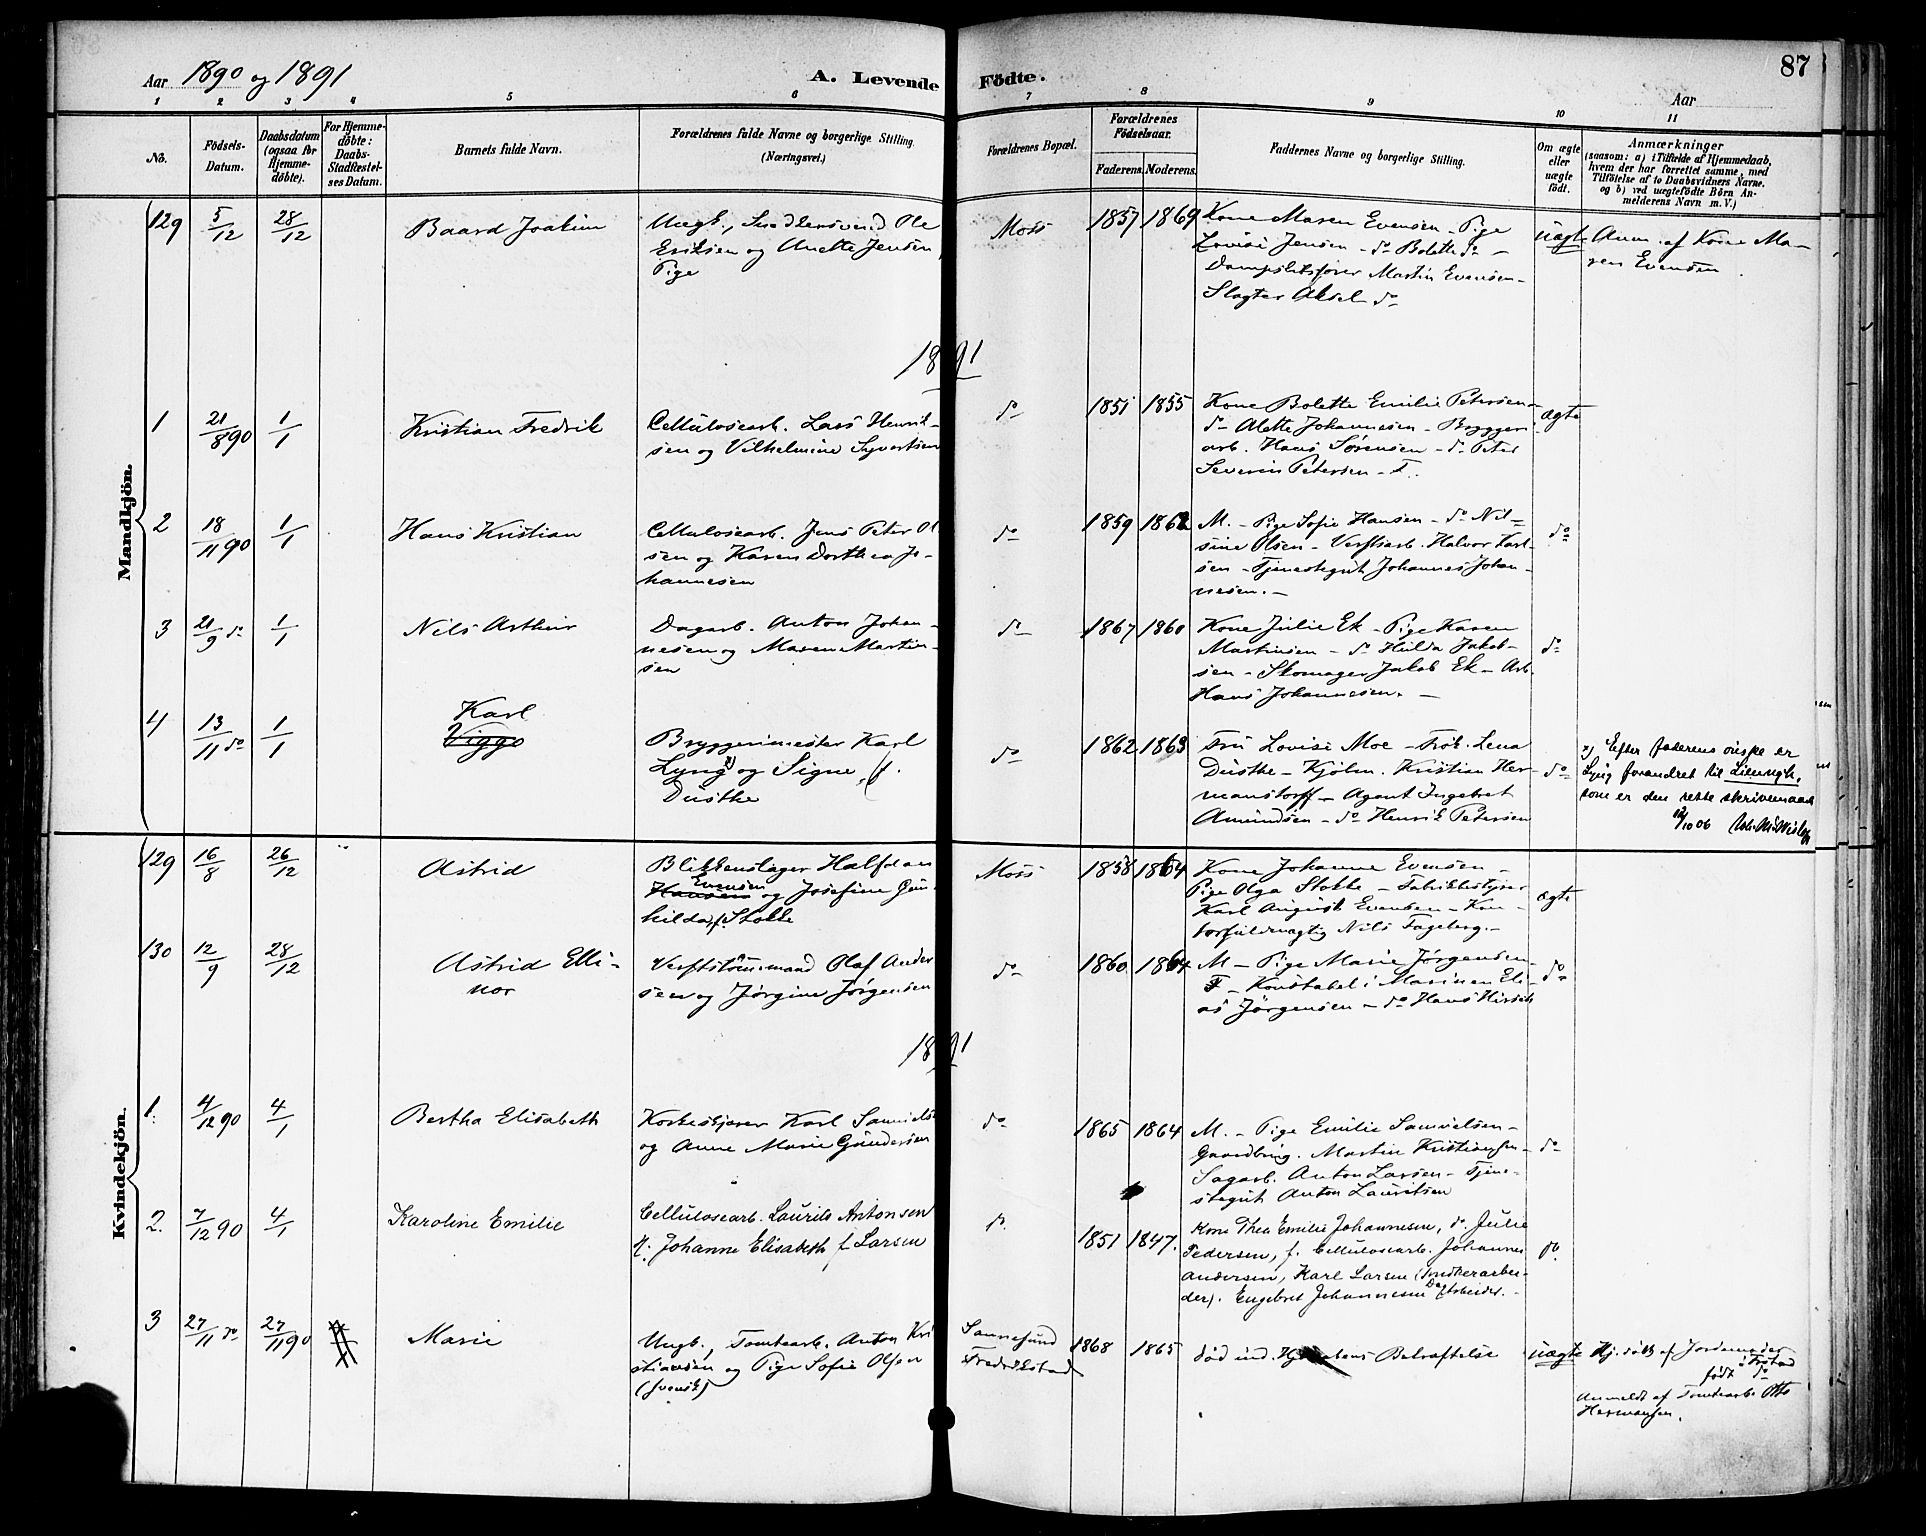 Aar 1890 og 1891
A. Levende Födte.
87
Aar
1 2 3 4 5 6 7 8 9 10 11
No.
Födsels-
Datum.
Daabsdatum
(ogsaa for
Hjemme-
döbte).
For Hjemme-
döbte:
Daabs-
Stadfæstel-
ses Datum.
Barnets fulde Navn.
Forældrenes fulde Navne og borgerlige Stilling.
(Næringsvei.)
Forældrenes Bopæl.
Forældrenes
Födselsaar.
Faderens. Moderens.
Faddernes Navne og borgerlige Stilling.
Om ægte
eller
uægte
födt.
Anmærkninger
(saasom: a) i Tilfælde af Hjemmedaab,
hvem der har forrettet samme, med
Tilföielse af to Daabsvidners Navne.
og b) ved uægtefödte Börn An-
melderens Navn m. V.)
Mandkjön.
129 5/12 28/12 Baard Joakim
Ungk., Snedkersvend Ole
Eriksen og Anette Jensen,
Pige
Moss 1857 1869
Kone Maren Evensen - Pige
Lovise Jensen - do Bolette do -
Dampskibsfører Martin Evensen -
Slagter Aksel do
uægte
Anm. af Kone Ma-
ren Evensen.
1891
1 21/8 90 1/1 Kristian Fredrik
Cellulosearb. Lars Henrik-
sen og Vilhelmine Syvertsen
do 1851 1855
Kone Bolette Emilie Petersen -
do Alette Johannesen - Bryggeri-
arb. Hans Sørensen - do Peter
Severin Petersen - F.
ægte
2 18/11 90 1/1 Hans Kristian
Cellulosearb. Jens Peter Ol
sen og Karen Dorthea Jo-
hannesen
do 1859 1862
M. - Pige Sofie Hansen - do Nil-
sine Olsen - Verftsarb. Halvor Karl-
sen - Tjenestegut Johannes Johan-
nesen. -
do
3 21/9 do 1/1 Nils Arthur
Dagarb. Anton Johan-
nesen og Maren Martin-
sen
do 1867 1860
Kone Julie Ek - Pige Karen
Martinsen - do Hilda Jakob-
sen - Skomager Jakob Ek - Arb.
Hans Johannesen. -
do
4 13/11 do 1/1 Karl
Viggo
Bryggerimester Karl
Lyng x) og Signe, f.
Dustke
do 1862 1863
Fru Lovise Moe - Frøk. Lena
Dustke - Kjøbm. Kristian Her-
manstorff - Agent Ingebret
Amundsen - do Henrik Petersen
do
x) Efter faderens ønske er
Lyng forandret til Liungh,
som er den rette skrivemaade
12/10 06
Kvindekjön.
129 16/8 26/12 Astrid
Blikkenslager Halfdan
Evensen
Hansen og Josefine Gun-
hilda, f. Stokke
Moss 1858 1864
Kone Johanne Evensen -
Pige Olga Stokke - Fabrikbestyrer
Karl August Evensen - Kon-
torfuldmægtig Nils Fageberg. -
ægte
130 12/9 28/12 Astrid Elli-
nor
Verftstømmermand Olaf Ander
sen og Jørgine Jørgensen
do 1860 1864
M - Pige Marie Jørgensen -
F - Konstabel i Marinen Eli-
as Jørgensen - do Hans Hirsch
do
1891
1. 4/12 90 4/1 Bertha Elisabeth
Korkeskjærer Karl Samuels
og Anne Marie Gundersen
do 1865 1864
M. - Pige Emilie Samuelsen -
Gaardbrug. Martin Kristiansen -
Sagarb. Anton Larsen - Tjene-
stegut Anton Lauritsen
do
2. 7/12 90 4/1 Karoline Emilie
Cellulosearb. Laurits Antonsen
H. Johanne Elisabeth f Larsen
do 1851 1847.
Kone Thea Emilie Johannesen, do. Julie
Pedersen, f. Cellulosearb. Johannes
Andersen, Karl Larsen (Snedkerarbei-
der). Engebret Johannesen Dagarbeider. -
do.
3 27/11 do 27/11 90 Marie
Ungk., Tomtearb. Anton Kri
stiansen og Pige Sofie Olsen
(svensk)
Sannesund
Fredrikstad 1868 1865
død ind. Hj.daabens Bekræftelse
uægte
Hj.døbt af Jordemoder
i Frstad
født do
Anmeldt af Tomtearb. Otto
Hermansen.